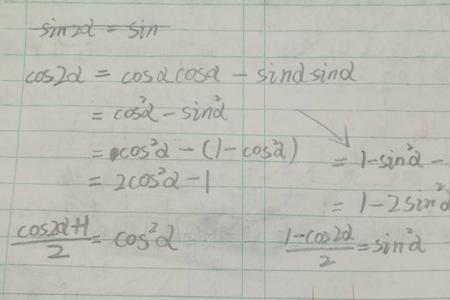 sin2α = sin
cos2α = cosαcosα - sinαsinα
= cos²α - sin²α
= cos²α - (1 - cos²α)
= 1 - sin²α -
= 2cos²α - 1
= 1 - 2sin²α
(cos2α+1)/2 = cos²α
(1-cos2α)/2 = sin²α